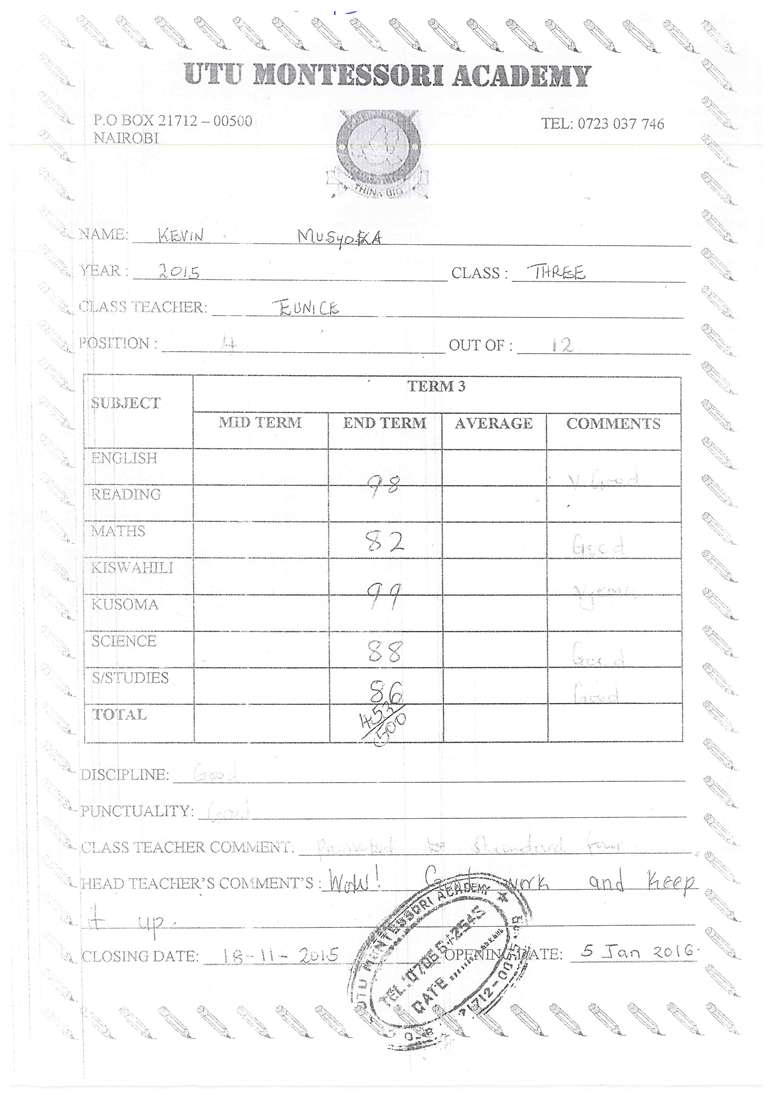 UTU MONTESSORI ACADEMY
P.O BOX 21712 – 00500
NAIROBI
TEL: 0723 037 746
THINK BIG
NAME: KEVIN MUSYOKA
YEAR : 2015 CLASS : THREE
CLASS TEACHER: EUNICE
POSITION : 4 OUT OF : 12
SUBJECT TERM 3
MID TERM END TERM AVERAGE COMMENTS
ENGLISH
READING 98 V. Good
MATHS 82 Good
KISWAHILI
KUSOMA 99
SCIENCE 88 Good
S/STUDIES 86 Good
TOTAL 453/500
DISCIPLINE: Good
PUNCTUALITY: Good
CLASS TEACHER COMMENT. Promoted to Standard four
HEAD TEACHER'S COMMENT'S : Wow! Good work and keep
it up.
CLOSING DATE: 18-11-2015 OPENING DATE: 5 Jan 2016.
UTU MONTESSORI ACADEMY
DATE